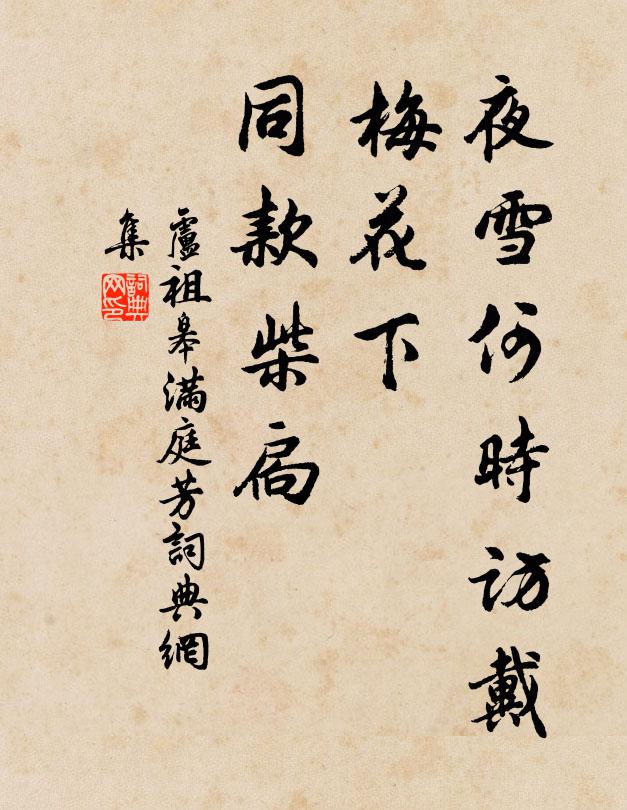 夜雪何時訪戴
梅花下
同款柴扃
盧祖皋滿庭芳詞典網
集
詞典网印